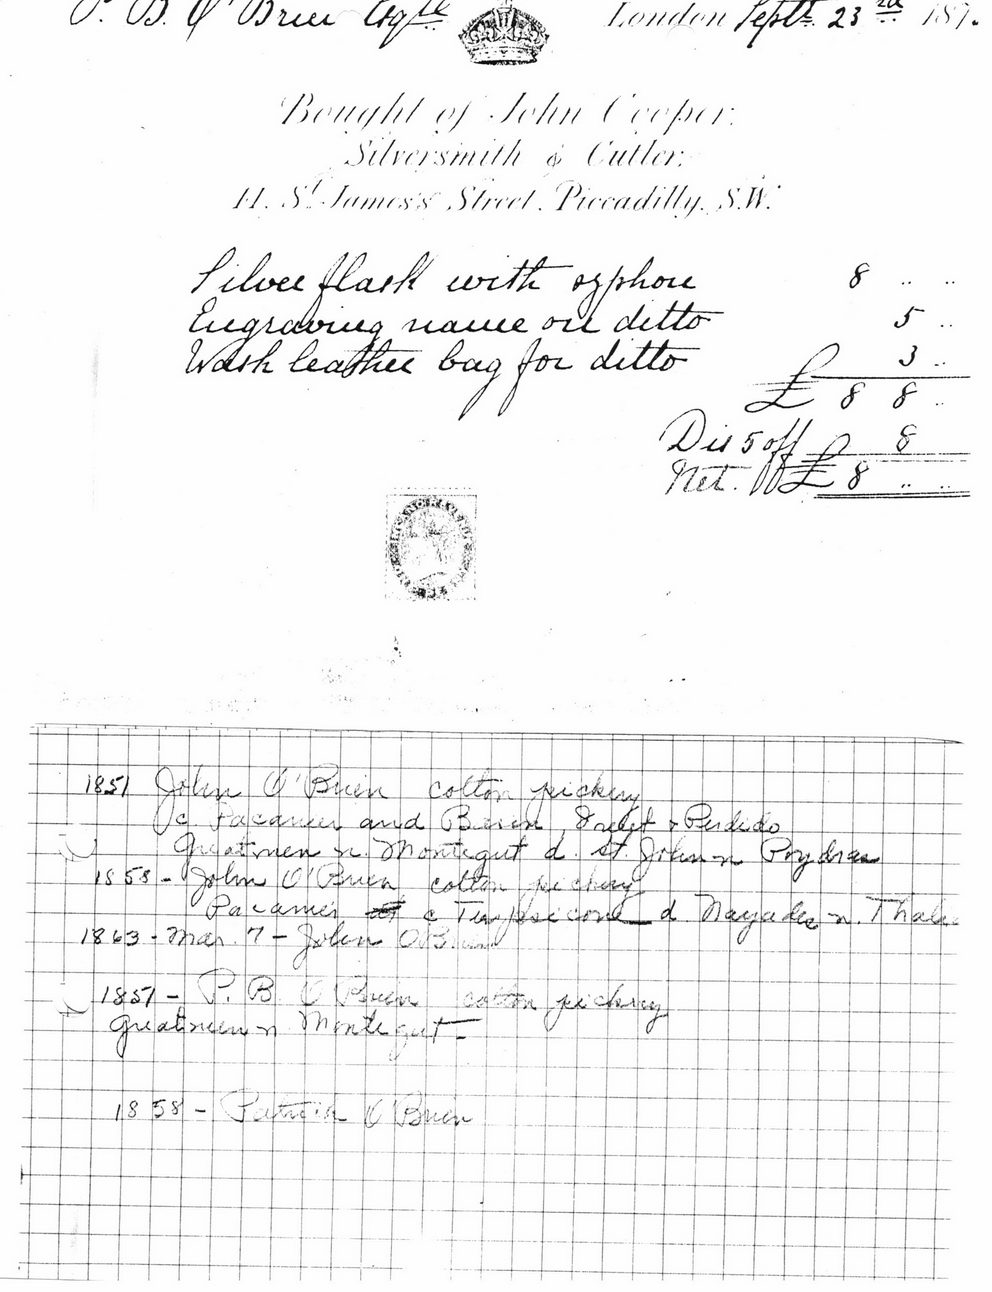 P. B. O'Brien Esqre London Septr. 23rd 187
Bought of John Cooper,
Silversmith & Cutler,
11. St. James's Street, Piccadilly, S.W.
Silver flask with syphon 8 .. ..
Engraving name on ditto 5 ..
Wash leather bag for ditto 3 ..
£ 8 8 ..
Dis 5 off 8
Net. £ 8 .. ..
1851 John O'Brien cotton pickery
c Pacanier and Basin, & Perdido
Greatmen n. Montegut d. St. John n Poydras
1858 - John O'Brien cotton pickery
Pacanier c Terpsicore d. Nayades n. Thalia
1863 - Mar. 7 - John O'Brien
1851 - P. B. O'Brien cotton pickery
Greatmen n Montegut -
1858 - Patrick O'Brien